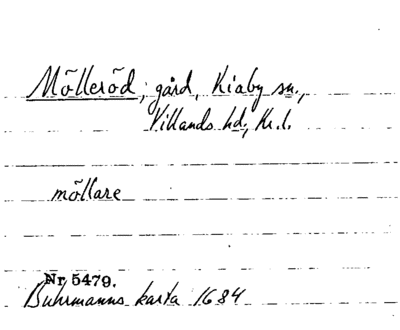 Mölleröd, gård, Kiaby sn.,
Villands hd., Kr.l.
möllare
Nr 5479.
Buhrmanns karta 1684